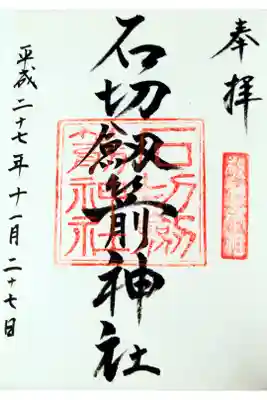 奉拝
石切劔箭神社
平成二十七年十一月二十七日
石切劔
箭神社